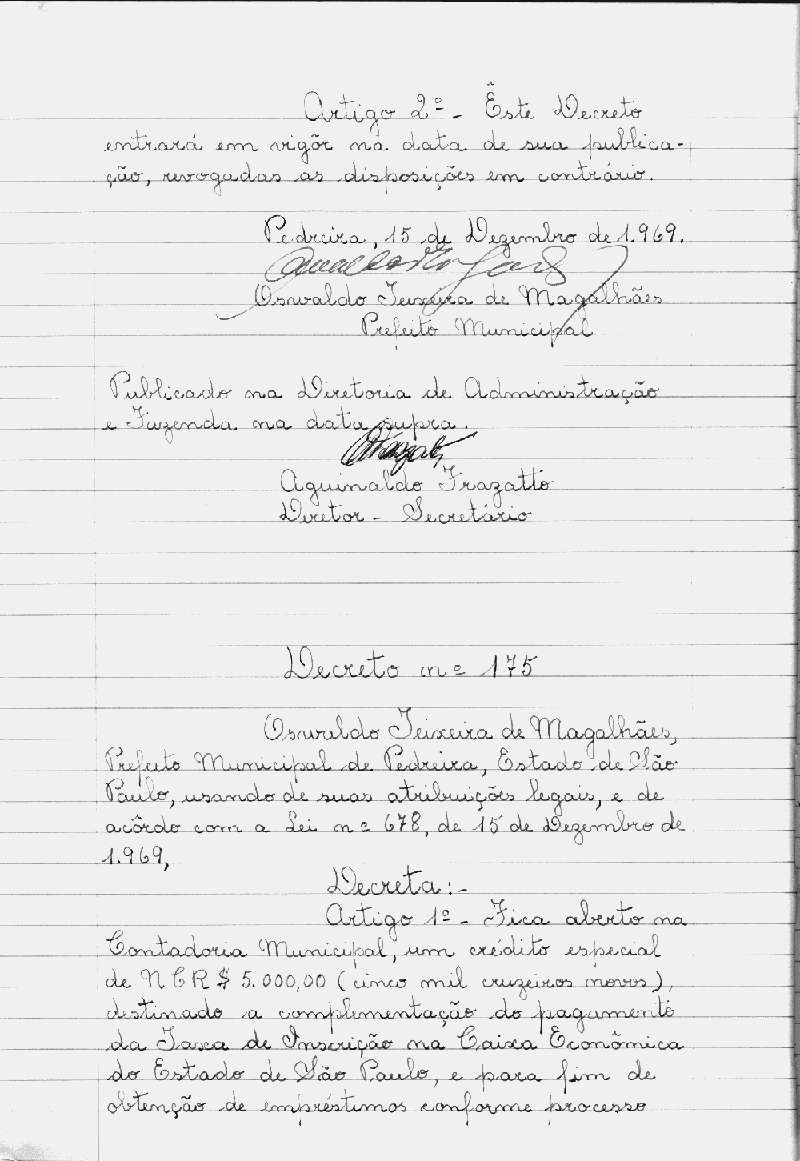 Artigo 2º - Êste Decreto
entrará em vigôr na data de sua publica-
ção, revogadas as disposições em contrário.
Pedreira, 15 de Dezembro de 1.969.
Oswaldo Teixeira de Magalhães
Prefeito Municipal
Publicado na Diretoria de Administração
e Fazenda na data supra.
Aguinaldo Frazatto
Diretor - Secretário
Decreto nº 175
Oswaldo Teixeira de Magalhães,
Prefeito Municipal de Pedreira, Estado de São
Paulo, usando de suas atribuições legais, e de
acôrdo com a Lei nº 678, de 15 de Dezembro de
1.969,
Decreta:-
Artigo 1º - Fica aberto na
Contadoria Municipal, um crédito especial
de NCR$ 5.000,00 (cinco mil cruzeiros novos),
destinado a complementação do pagamento
da Taxa de Inscrição na Caixa Econômica
do Estado de São Paulo, e para fim de
obtenção de empréstimos conforme processo